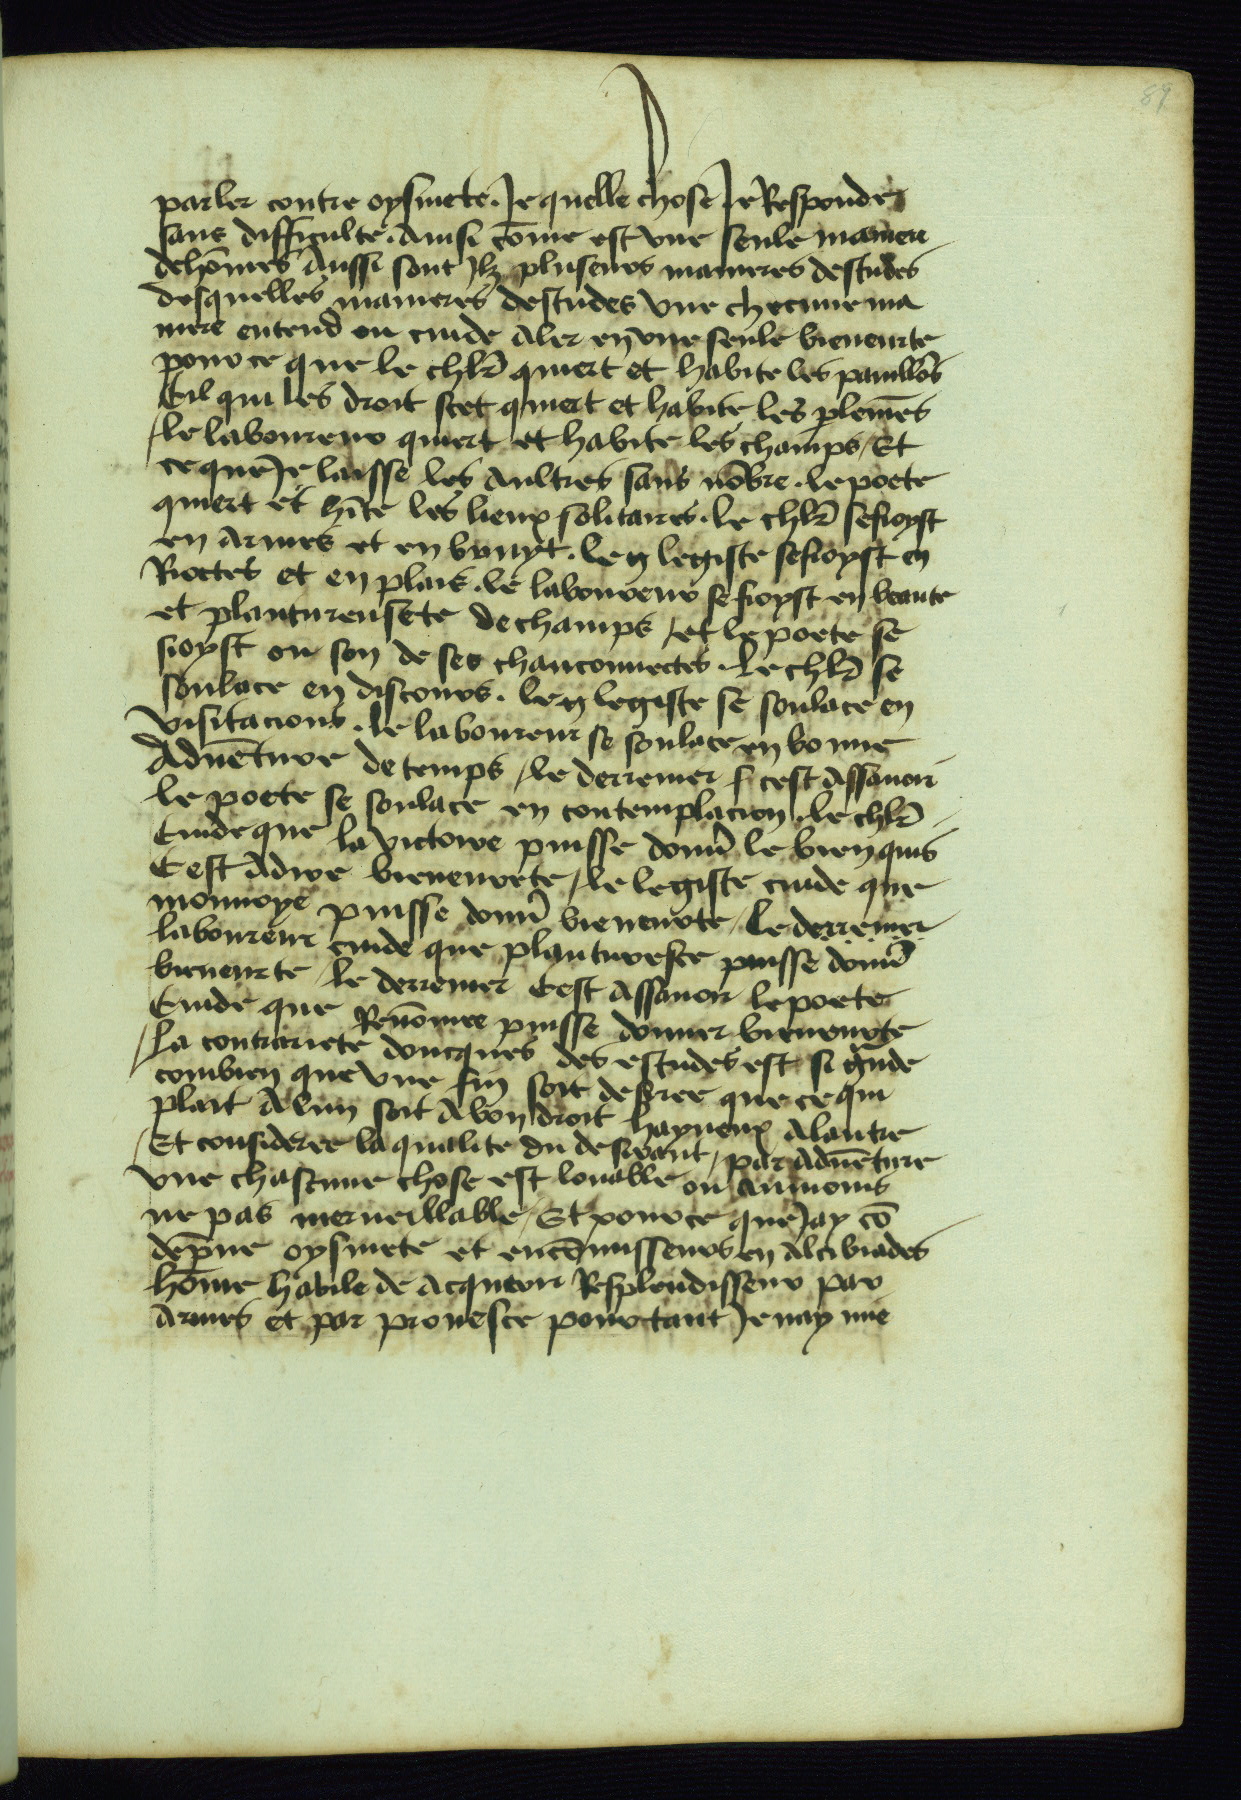 89
parler contre oysiuete. Je quelle chose Je Respondez
sans difficulte. Ainsi cõme est vne seule maniere
dehõmes Aussi sont Jlz pluseurs manieres destudes
desquelles manieres destudes vne checune ma
niere entend ou cuide Aler en vne seule bieneurte
pource que le chlr̃ quiert et habite les pauillõs
Cil qui les droit scet quiert et habite les plemẽs
/ le laboureur quiert et habite les champs / Et
ce que Je laisse les Aultres sans nõbre. le poete
quiert et hĩte les lieux solitaires. le chlr̃ sesioyst
en Armes et en bruyt. le legiste sesioyst en
Riottes et en plais. le laboureur sesioyst en beaute
et plantureusete de champs / et le poete se
sioyst ou son de ses chanconnectes. Le chlr̃ se
soulace en discours. le legiste se soulace en
visitacions. le laboureur se soulace en bonne
Aduẽture de temps / le derrenier s cest Assauoir
le poete se soulace en contemplacion. le chlr̃
Cuide que la victoire puisse donñ le bien quis
Cest Adire bieneurete / le legiste cuide que
monnoye puisse donñ bieneurte / Le derrenier
laboureur cuide que planturesce puisse donñ
bieneurte / le derrenier Cest Assauoir le poete
Cuide que Renõmee puisse donner bieneurte
/ La contrariete doncques des estudes est si grãde
combien que vne fin soit desiree que ce qui
plait A lun soit A bon droit hayneux A lautre
/ Et consideree la qualite du desirant / par Aduẽture
vne chascune chose est louable ou Aumoins
ne pas merueillable / Et pource que Jay cõ
dẽpne oysiuete et encõmisseurs en Alcibiades
hõme habile de Acquerir Resplendisseur par
Armes et par prouesce pourtant Je nay mie